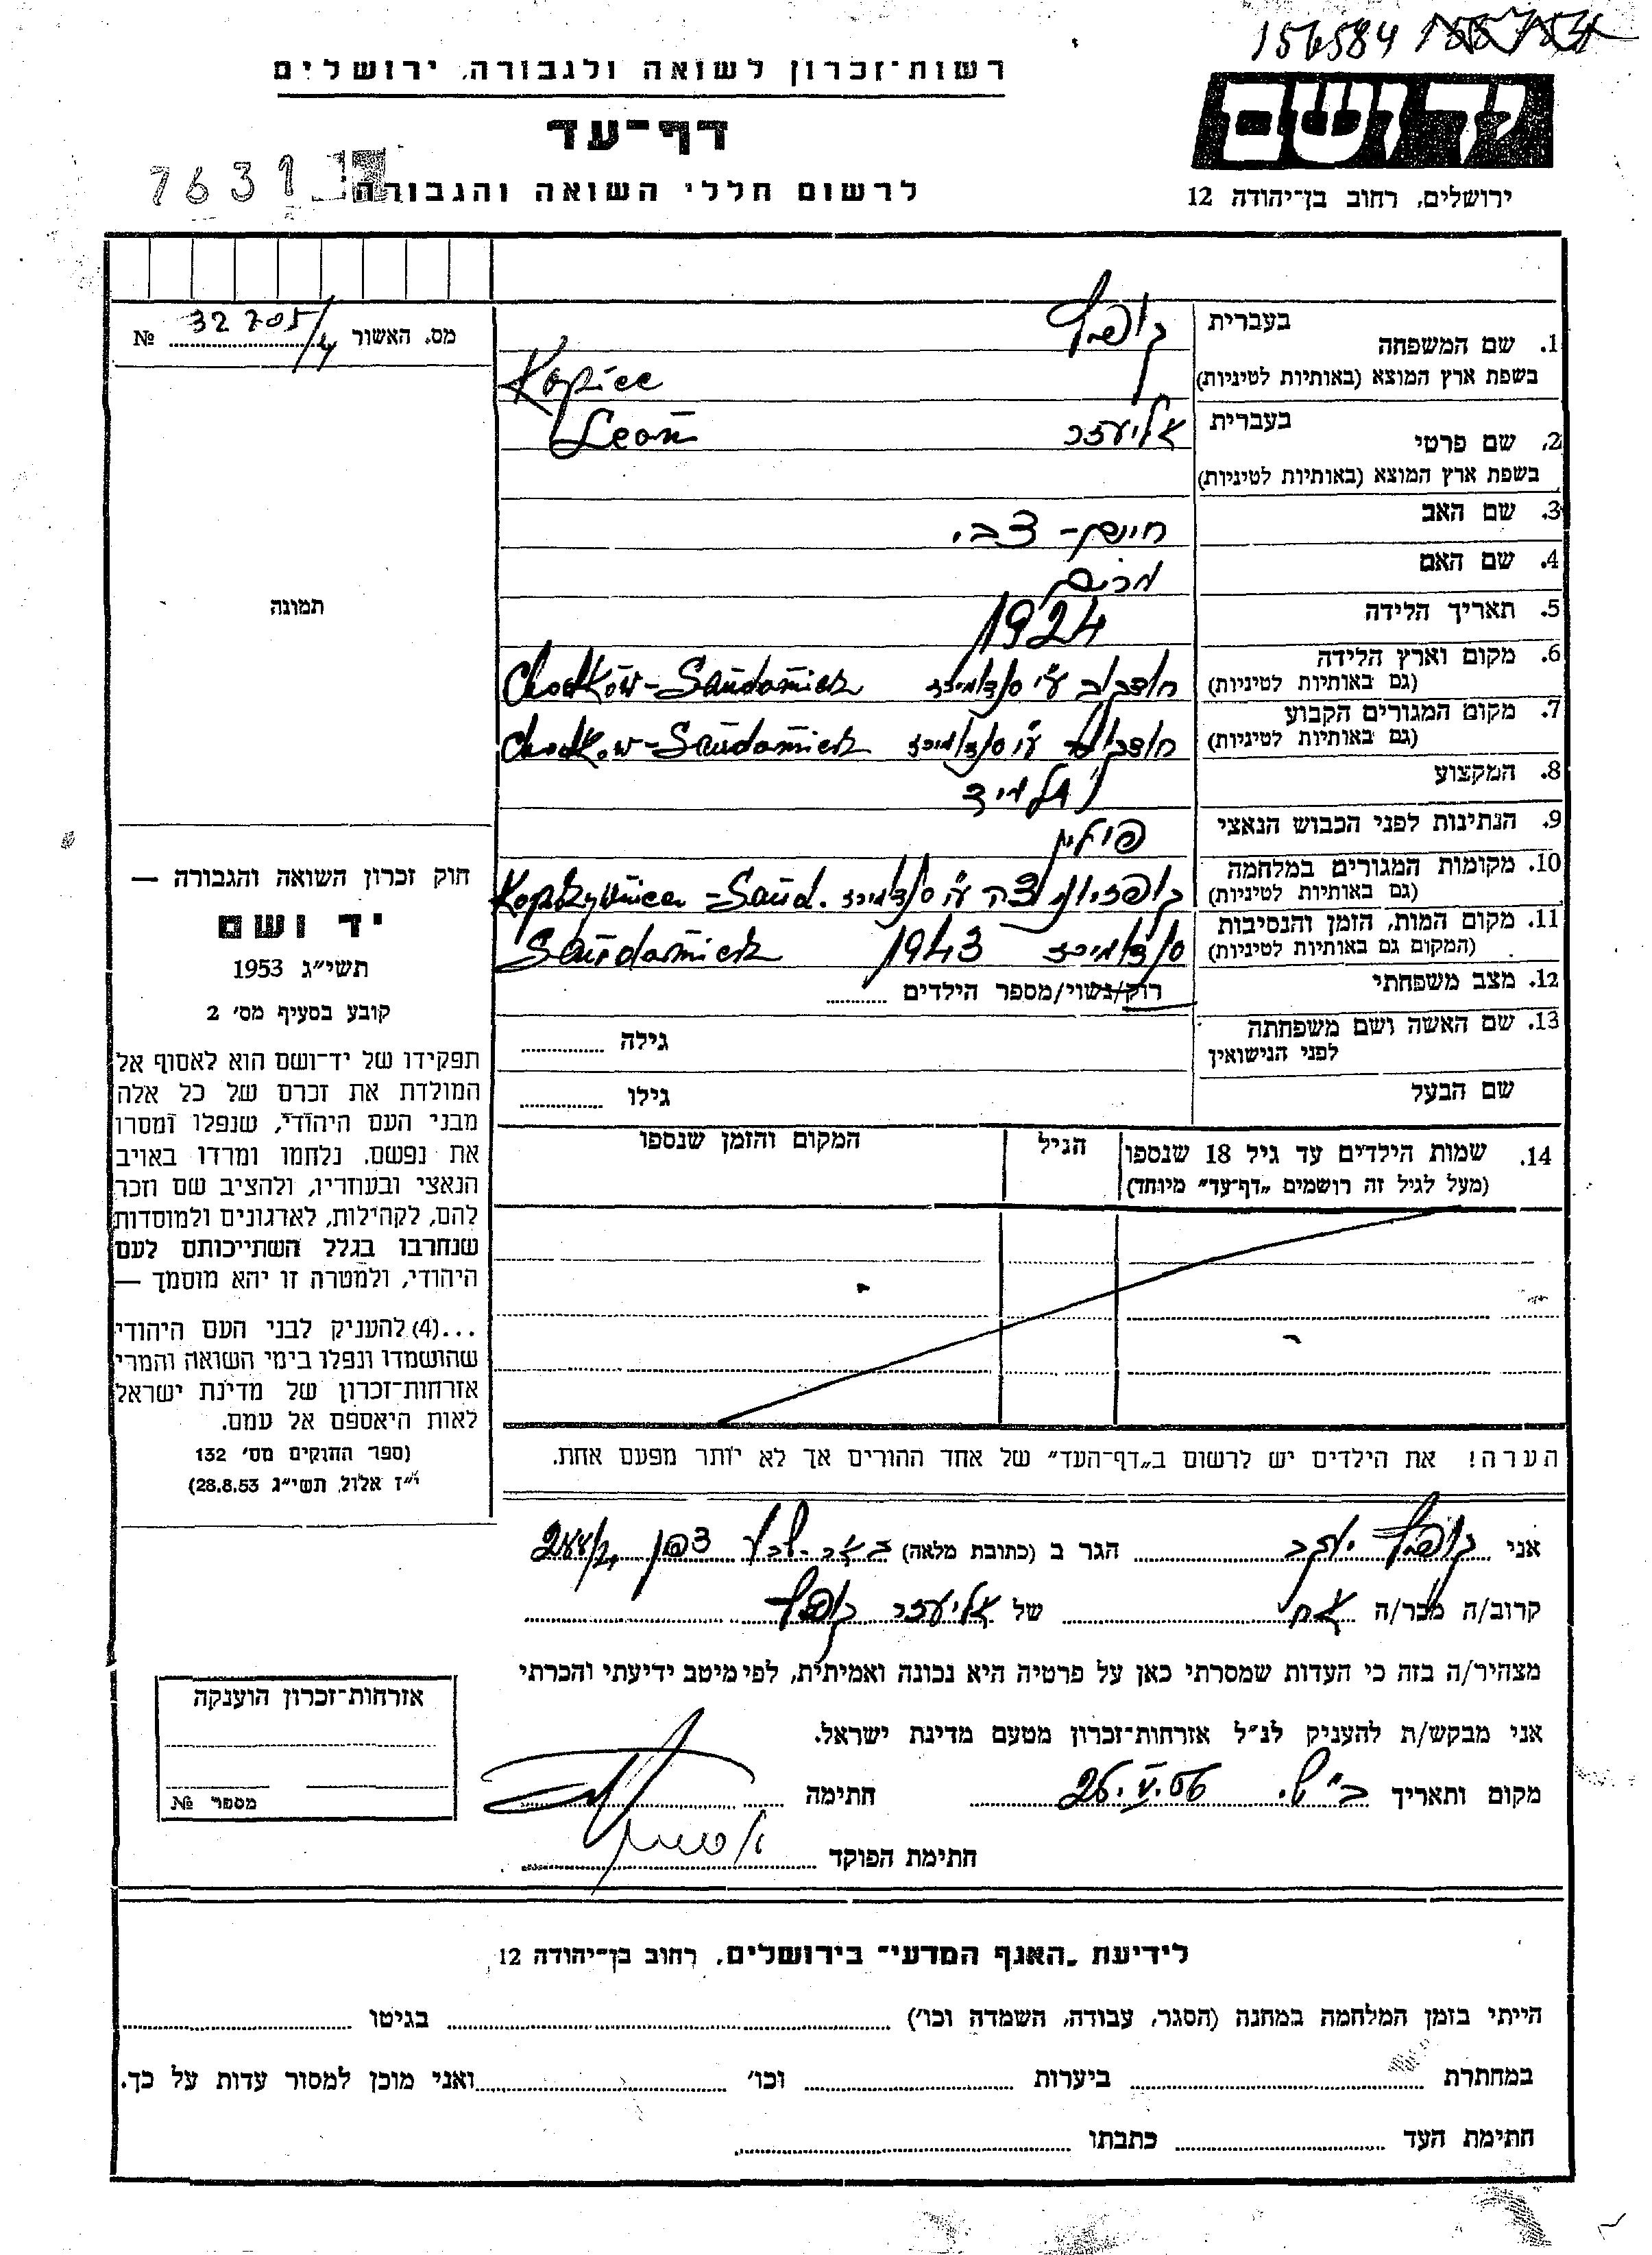 156584
רשות־זכרון לשואה ולגבורה, ירושלים
יד ושם
דף־עד
לרשום חללי השואה והגבורה
7631
ירושלים, רחוב בן־יהודה 12
מס. האשור 32705/4 №
1. שם המשפחה
בעברית
בשפת ארץ המוצא (באותיות לטיניות)
Kopiec
2. שם פרטי
בעברית אליעזר
Leon
בשפת ארץ המוצא (באותיות לטיניות)
3. שם האב
צבי
4. שם האם מרים
5. תאריך הלידה 1924
6. מקום וארץ הלידה
(גם באותיות לטיניות)
ע"י סנדומיז'
7. מקום המגורים הקבוע
(גם באותיות לטיניות)
ע"י סנדומיז'
8. המקצוע תלמיד
9. הנתינות לפני הכבוש הנאצי פולין
10. מקומות המגורים במלחמה
(גם באותיות לטיניות)
ע"י סנדומיז'
11. מקום המות, הזמן והנסיבות
(המקום גם באותיות לטיניות)
1943
12. מצב משפחתי רווק/נשוי/מספר הילדים
13. שם האשה ושם משפחתה
לפני הנישואין
גילה
שם הבעל גילו
14. שמות הילדים עד גיל 18 שנספו
(מעל לגיל זה רושמים „דף־עד" מיוחד)
הגיל
המקום והזמן שנספו
תמונה
חוק זכרון השואה והגבורה —
יד ושם
תשי"ג 1953
קובע בסעיף מס' 2
תפקידו של יד־ושם הוא לאסוף אל
המולדת את זכרם של כל אלה
מבני העם היהודי, שנפלו ומסרו
את נפשם, נלחמו ומרדו באויב
הנאצי ובעוזריו, ולהציב שם וזכר
להם, לקהילות, לארגונים ולמוסדות
שנחרבו בגלל השתייכותם לעם
היהודי, ולמטרה זו יהא מוסמך —
...(4) להעניק לבני העם היהודי
שהושמדו ונפלו בימי השואה והמרי
אזרחות־זכרון של מדינת ישראל
לאות היאספם אל עמם.
(ספר החוקים מס' 132
י"ז אלול תשי"ג 28.8.53)
הערה! את הילדים יש לרשום ב„דף־העד" של אחד ההורים אך לא יותר מפעם אחת.
אני יעקב הגר ב (כתובת מלאה) באר־שבע
קרוב/ה מכר/ה אח של אליעזר
מצהיר/ה בזה כי העדות שמסרתי כאן על פרטיה היא נכונה ואמיתית, לפי מיטב ידיעתי והכרתי
אני מבקש/ת להעניק לנ"ל אזרחות־זכרון מטעם מדינת ישראל.
מקום ותאריך ב"ש. 26.V.56 חתימה
חתימת הפוקד
אזרחות־זכרון הוענקה
מספר №
לידיעת „האגף המדעי" בירושלים, רחוב בן־יהודה 12
הייתי בזמן המלחמה במחנה (הסגר, עבודה, השמדה וכו') בגיטו
במחתרת ביערות וכו' ואני מוכן למסור עדות על כך.
חתימת העד כתבתו